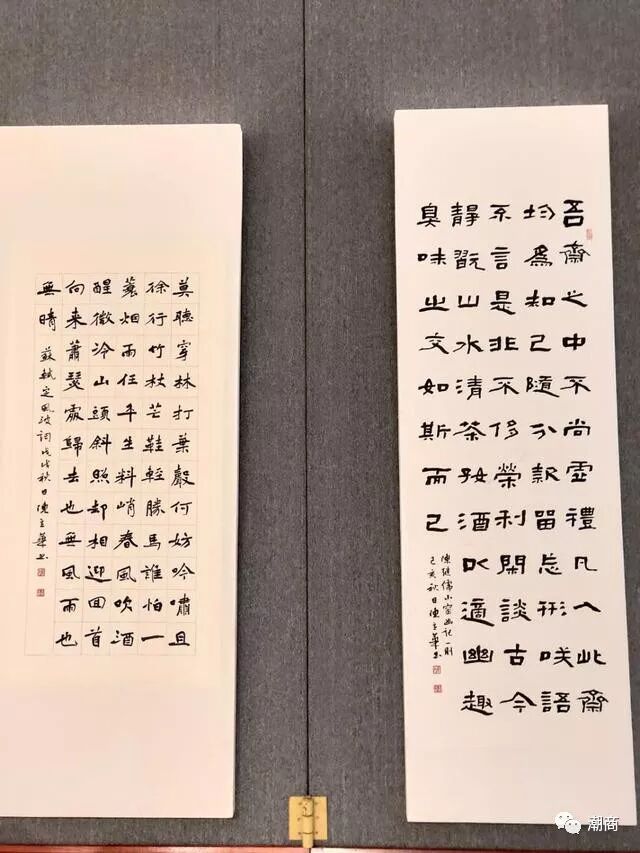 吾齋之中不尚虛禮凡入此齋
均為知己隨分款留忘形咲語
不言是非不侈榮利閑談古今
靜翫山水清茶好酒以適幽趣
臭味之交如斯而已
陳繼儒小窗幽記一則
己亥秋日陳立華书
莫聽穿林打葉聲何妨吟嘯且
徐行竹杖芒鞋輕勝馬誰怕一
蓑烟雨任平生料峭春風吹酒
醒微冷山頭斜照却相迎回首
向来蕭瑟處歸去也無風雨也
無晴
蘇軾定風波詞戊戌秋日陳立華书
潮商